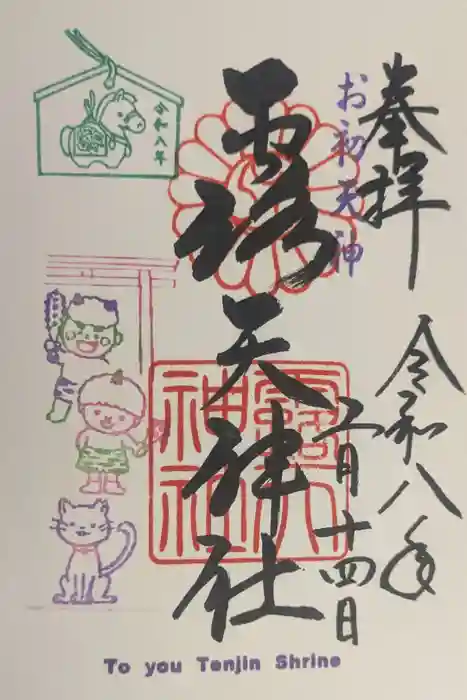 奉拝
お初天神
令和八年
二月十四日
露天神社
露天
神社
令和八年
To you Tenjin Shrine